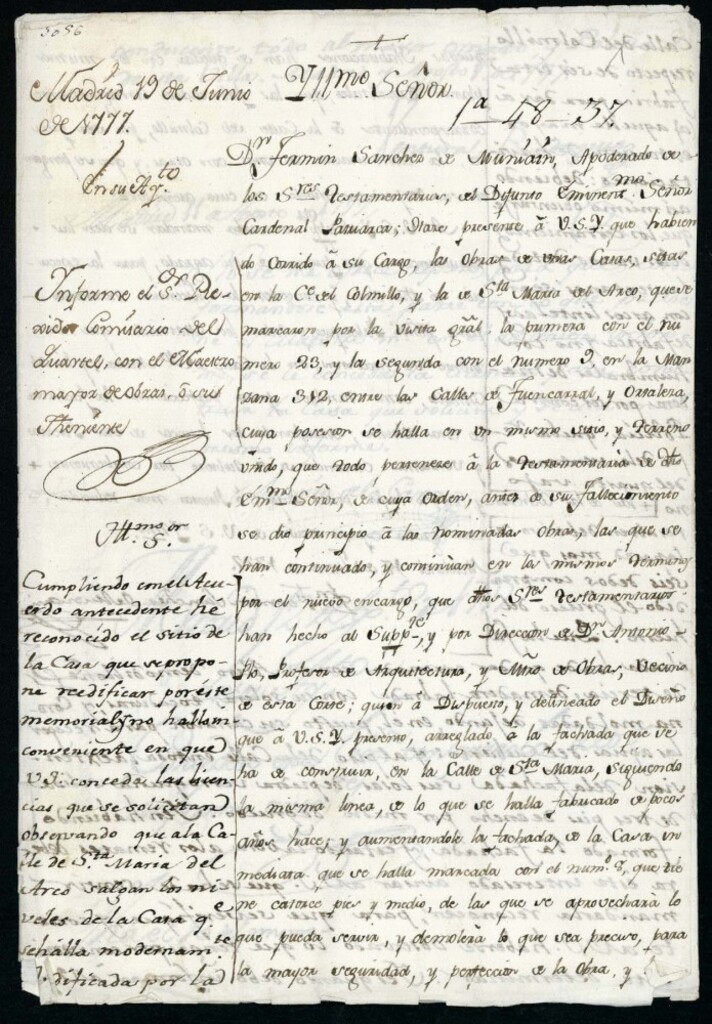 5656
Madrid 19 de Junio
de 1777.
En su Ay.to
Informe el S.or Re-
xidor Comisario del
Quartel, con el Maestro
mayor de obras, ó su
Theniente
Yllmo Señor
1a 48 37.
Dn Fermin Sanchez de Muniain, Apoderado de
los Sres Testamentarios, del Difunto Eminentmo Señor
Cardenal Patriarca; Hace presente â V.S.Y. que habien
do Corrido â su Cargo, las Obras de unas Casas, sitas
en la Ce del Colmillo, y la de Sta Maria del Arco, que se
marcaron por la visita gral, la primera con el nu
mero 23, y la segunda con el numero 9, en la Man
zana 342, entre las Calles de Fuencarral, y Ortaleza,
cuya posesion se halla en un mismo sitio, y Terreno
unido, que todo pertenece â la Testamentaria de dho
Emmo Señor, de cuya Orden, antes de su fallecimiento
se dio principio â las nominadas Obras, las que se
han continuado, y continuan en los mismos terminos
por el nuevo encargo, que dhos Sres Testamentarios
han hecho al Suppte, y por Direccion de Dn Antonio
Plo, Profesor de Arquitectura, y Mtro de Obras, Vecino
de esta Corte; quien â Dispuesto, y delineado el Diseño
que â V.S.Y. presento, arreglado â la fachada que se
ha de construir, en la Calle de Sta Maria, siguiendo
la misma linea, de lo que se halla fabricado de pocos
años hace; y aumentandole la fachada, de la Casa in
mediata, que se halla marcada con el num.o 8, que tie
ne catorce pies y medio, de las que se aprovechará lo
que pueda servir, y demolerá lo que sea preciso, para
la mayor seguridad, y perfeccion de la Obra, y
Ill.mo S.or
Cumpliendo con el Acu-
erdo antecedente hé
reconocido el sitio de
la Casa que se propo-
ne reedificar por éste
memorial, y no hallo in-
conveniente en que
V.S.I. conceda las licen-
cias que se solicitan
observando que a la Ca-
lle de S.ta Maria del
Arco salgan los ni-
veles de la Casa q.e
se halla modernam.te
edificada por la